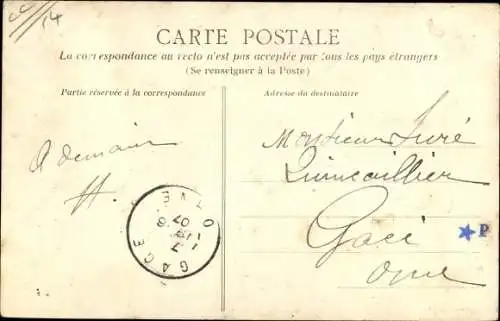 14
CARTE POSTALE
La correspondance au recto n'est pas acceptée par tous les pays étrangers
(Se renseigner à la Poste)
Partie réservée à la correspondance
Adresse du destinataire
A demain
H.
Monsieur Juré
Quincaillier
Gacé
Orne
GACE
ORNE
07
P